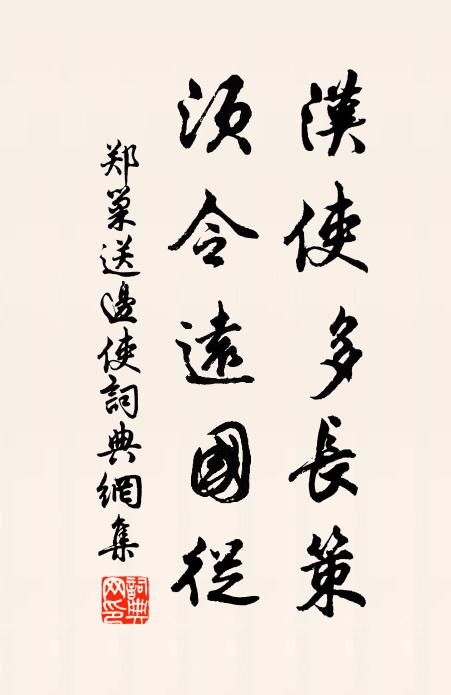 漢使多長策
須令遠國從
郑巢送邊使詞典網集
詞典网印